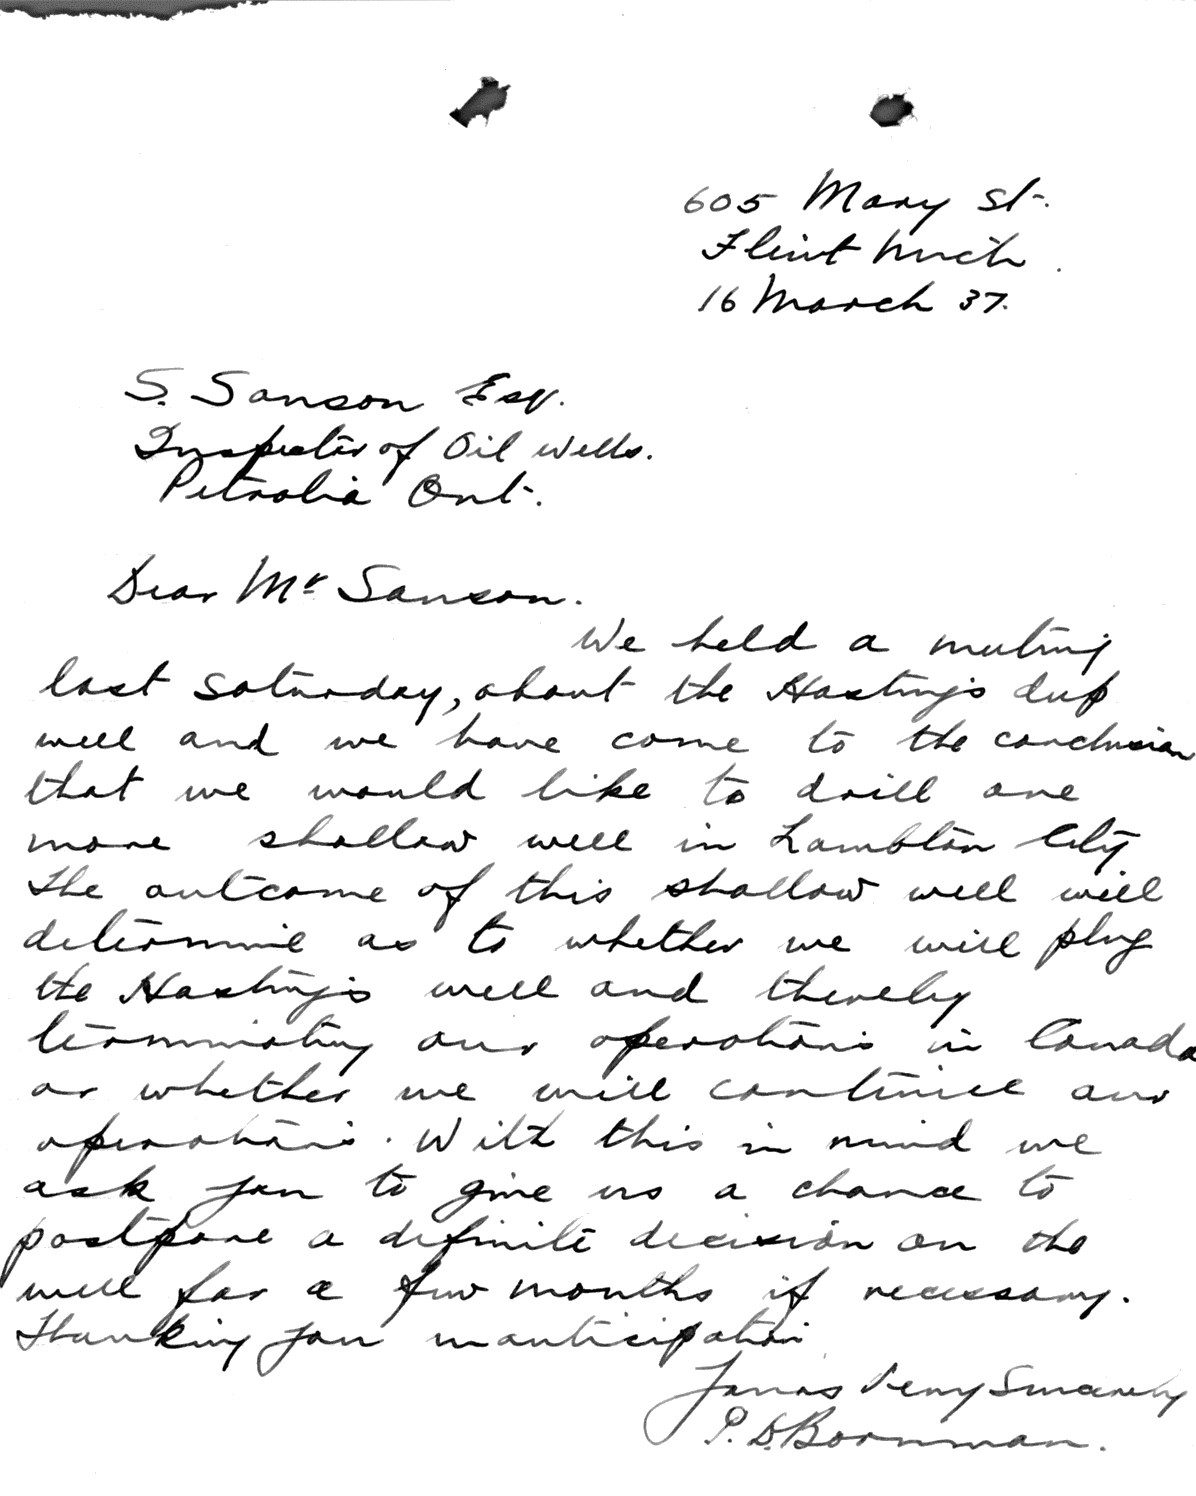 605 Mary St.
Flint Mich.
16 March 37.
S. Sanson Esq.
Inspector of Oil Wells.
Petrolia Ont.
Dear Mr Sanson.
We held a meeting
last Saturday, about the Hastings deep
well and we have come to the conclusion
that we would like to drill one
more shallow well in Lambton
The outcome of this shallow well will
determine as to whether we will plug
the Hastings well and thereby
terminating our operations in Canada
or whether we will continue our
operations. With this in mind we
ask you to give us a chance to
postpone a definite decision on the
well for a few months if necessary.
Thanking you in anticipation
Yours Very Sincerely
P. D. Bornman.